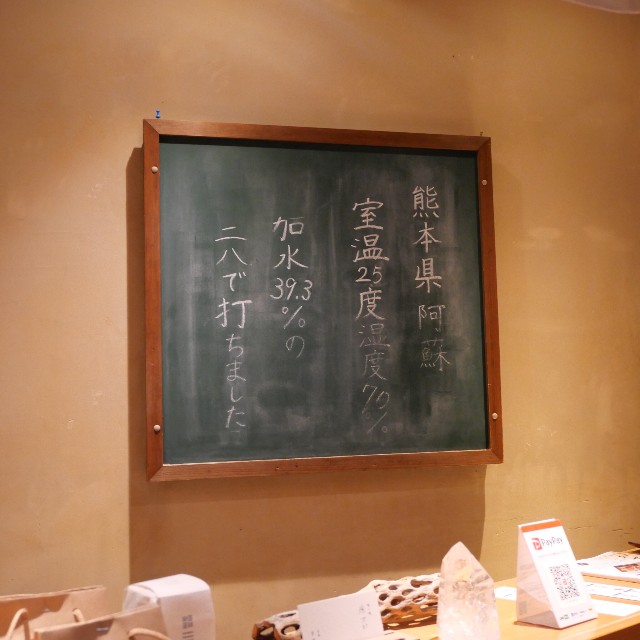 熊本県阿蘇
室温25度湿度70%
加水39.3%の
二八で打ちました
PayPay